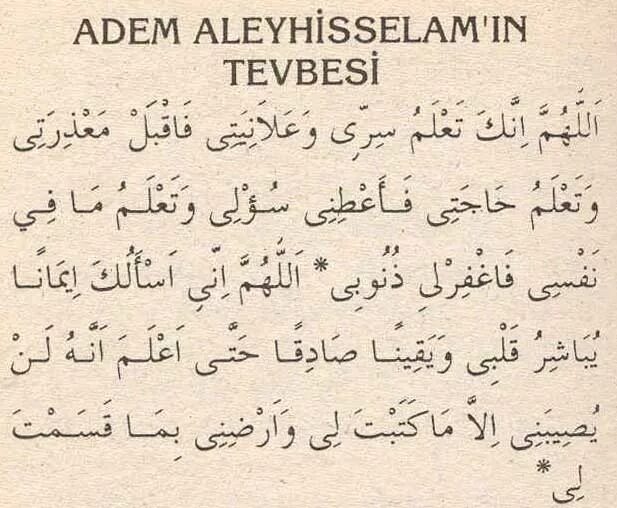 ADEM ALEYHİSSELAM'IN
TEVBESİ
اَللّٰهُمَّ اِنَّكَ تَعْلَمُ سِرِّى وَعَلَانِيَتِى فَاقْبَلْ مَعْذِرَتِى
وَتَعْلَمُ حَاجَتِى فَأَعْطِنِى سُؤْلِى وَتَعْلَمُ مَا فِي
نَفْسِى فَاغْفِرْلِى ذُنُوبِى * اَللّٰهُمَّ اِنِّي اَسْأَلُكَ اِيمَانًا
يُبَاشِرُ قَلْبِى وَيَقِينًا صَادِقًا حَتَّى اَعْلَمَ اَنَّهُ لَنْ
يُصِيبَنِى اِلاَّ مَا كَتَبْتَ لِى وَاَرْضِنِى بِمَا قَسَمْتَ
لِى *